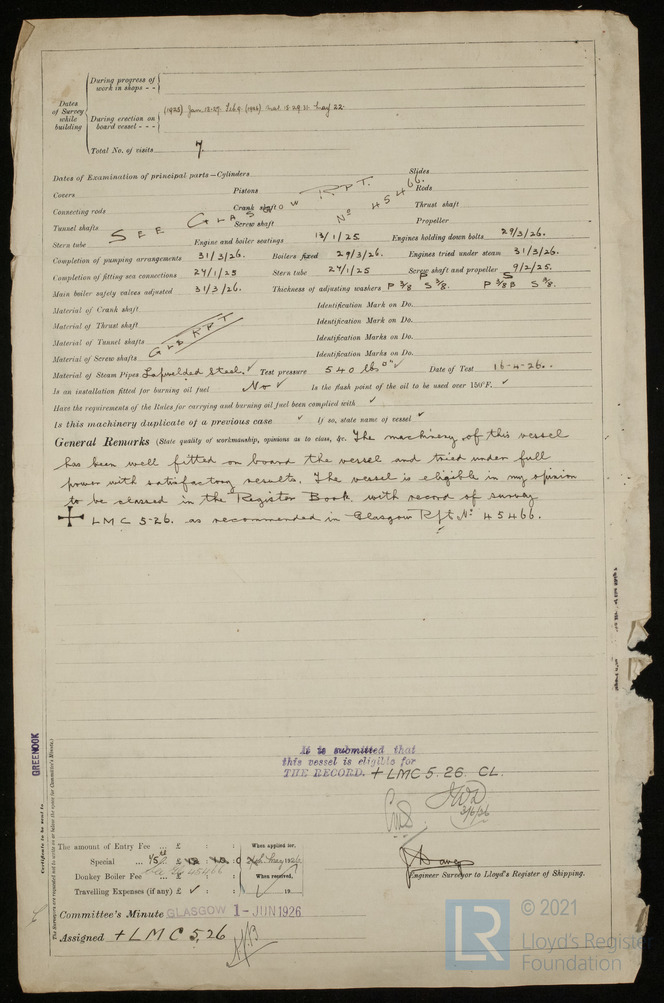 During progress of
work in shops - -
Dates
of Survey
while
building
During erection on
board vessel - - -
(1925) Jan. 13. 27. Feb 9. (1926) 18. 29. 31. May 22.
Total No. of visits 7.
Dates of Examination of principal parts—Cylinders Slides
Covers Pistons Rods
Connecting rods Crank shaft Thrust shaft
Tunnel shafts Screw shaft Propeller
SEE GLASGOW RPT. No 45466.
Stern tube Engine and boiler seatings 13/1/25 Engines holding down bolts 29/3/26.
Completion of pumping arrangements 31/3/26. Boilers fixed 29/3/26. Engines tried under steam 31/3/26.
Completion of fitting sea connections 27/1/25 Stern tube 27/1/25 Screw shaft and propeller 9/2/25.
Main boiler safety valves adjusted 31/3/26. Thickness of adjusting washers P 3/8 S 3/8. P 3/8 S 3/8.
Material of Crank shaft Identification Mark on Do.
Material of Thrust shaft Identification Mark on Do.
Material of Tunnel shafts Identification Marks on Do.
Material of Screw shafts Identification Marks on Do.
GLS RPT
Material of Steam Pipes Lapwelded Steel. ✓ Test pressure 540 lbs □" ✓ Date of Test 16-4-26.
Is an installation fitted for burning oil fuel No ✓ Is the flash point of the oil to be used over 150°F. ✓
Have the requirements of the Rules for carrying and burning oil fuel been complied with ✓
Is this machinery duplicate of a previous case ✓ If so, state name of vessel ✓
General Remarks (State quality of workmanship, opinions as to class, &c. The machinery of this vessel
has been well fitted on board the vessel and tried under full
power with satisfactory results. The vessel is eligible in my opinion
to be classed in the Register Book with record of survey
+ LMC 5-26. as recommended in Glasgow Rpt No 45466.
GREENOCK
Certificate to be sent to
(The Surveyors are requested not to write on or below the space for Committee's Minute.)
It is submitted that
this vessel is eligible for
THE RECORD. + LMC 5.26. CL.
3/6/26
The amount of Entry Fee ... £ : : When applied for,
Special ... £
Donkey Boiler Fee ... £ : : When received,
Travelling Expenses (if any) £ ✓ : : 19
Engineer Surveyor to Lloyd's Register of Shipping.
Committee's Minute GLASGOW 1-JUN 1926
Assigned + LMC 5,26
LR
© 2021
Lloyd's Register
Foundation